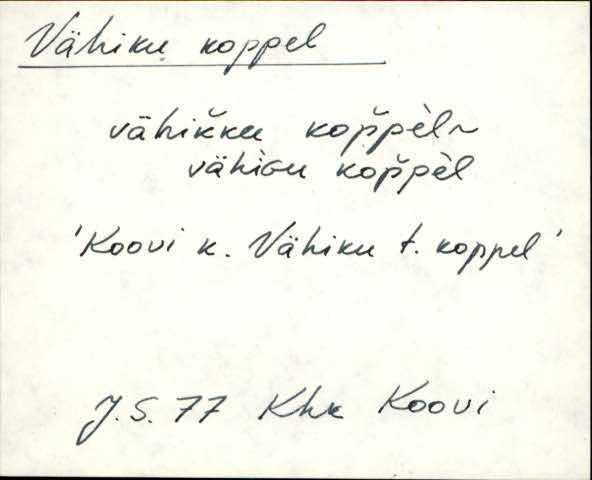 Vähiku koppel
vähik̆ku kop̆pèl ~
vähiɢu kop̆pèl
'Koovi k. Vähiku t. koppel'
J.S. 77 Khk Koovi